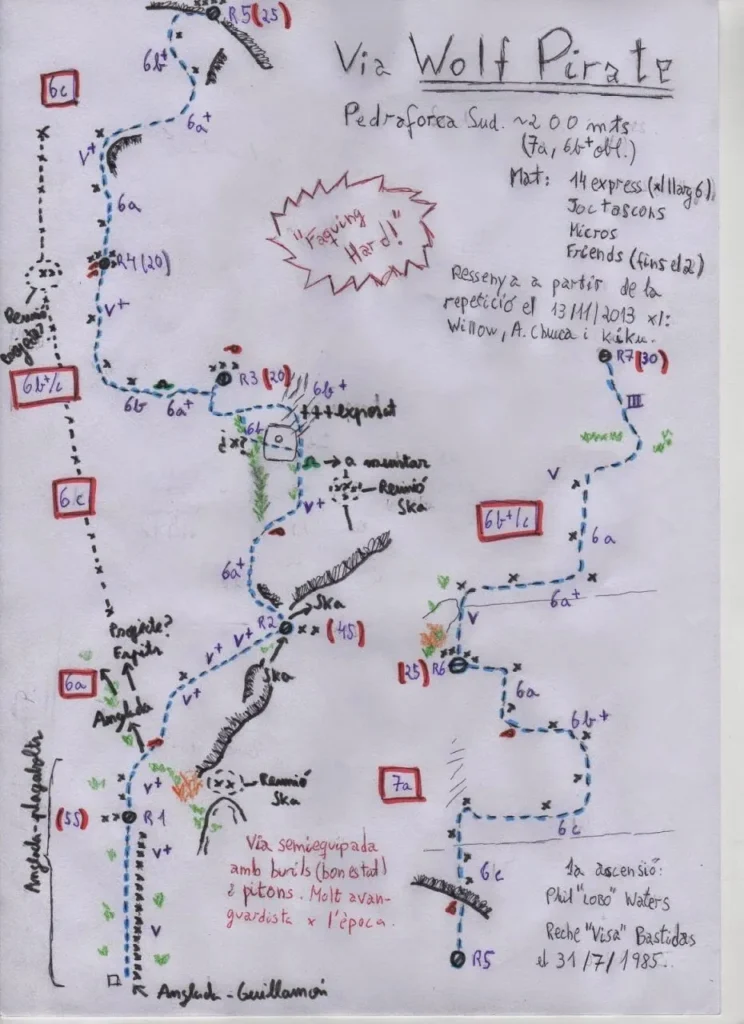 R5 (25)
Via Wolf Pirate
Pedraforca Sud. ~200 mts
(7a, 6b+ obl.)
Mat: 14 express (xl llarg 6)
Joc tascons
Micros
Friends (fins el 2)
Ressenya a partir de la
repetició el 13/11/2013 xl:
Willow, A. Chuca i kiku.
"Faquing
Hard!"
6b+
6c
6a+
V+
6a
R4 (20)
V+
Reunió
6b+/c
6b
6a+
R3 (20)
6b+
+++exposat
6b
¿x?
→ a muntar
Reunió
Ska
V+
6c
6a+
Ska
R2
(45)
V+
V+
V+
Ska
Projecte?
Espits
6a
Anglada
Anglada-plagabolts
V+
Reunió
Ska
(55)
R1
V+
V
Anglada-Guillamon
Via semiequipada
amb burils (bon estat)
i pitons. Molt avan-
guardista x l'època.
R7 (30)
III
V
6b+/c
6a
6a+
V
(25) R6
6a
6b+
7a
6c
6c
R5
1a ascensió:
Phil "Lobo" Waters
Reche "Visa" Bastidas
el 31/7/1985..